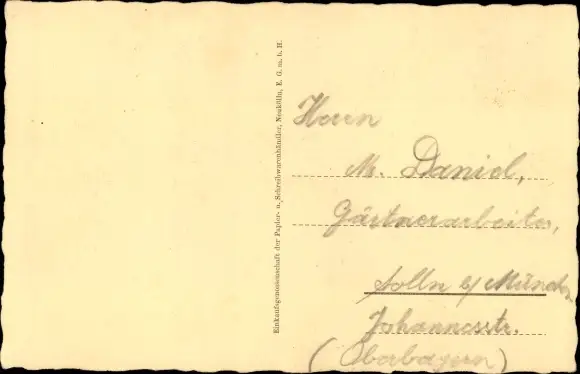 Einkaufsgenossenschaft der Papier- u. Schreibwarenhändler, Neukölln, E. G. m. b. H.
Herrn
M. Daniel,
Gärtnerarbeiter,
Solln b/ Münch.
Johannesstr.
(Oberbayern)